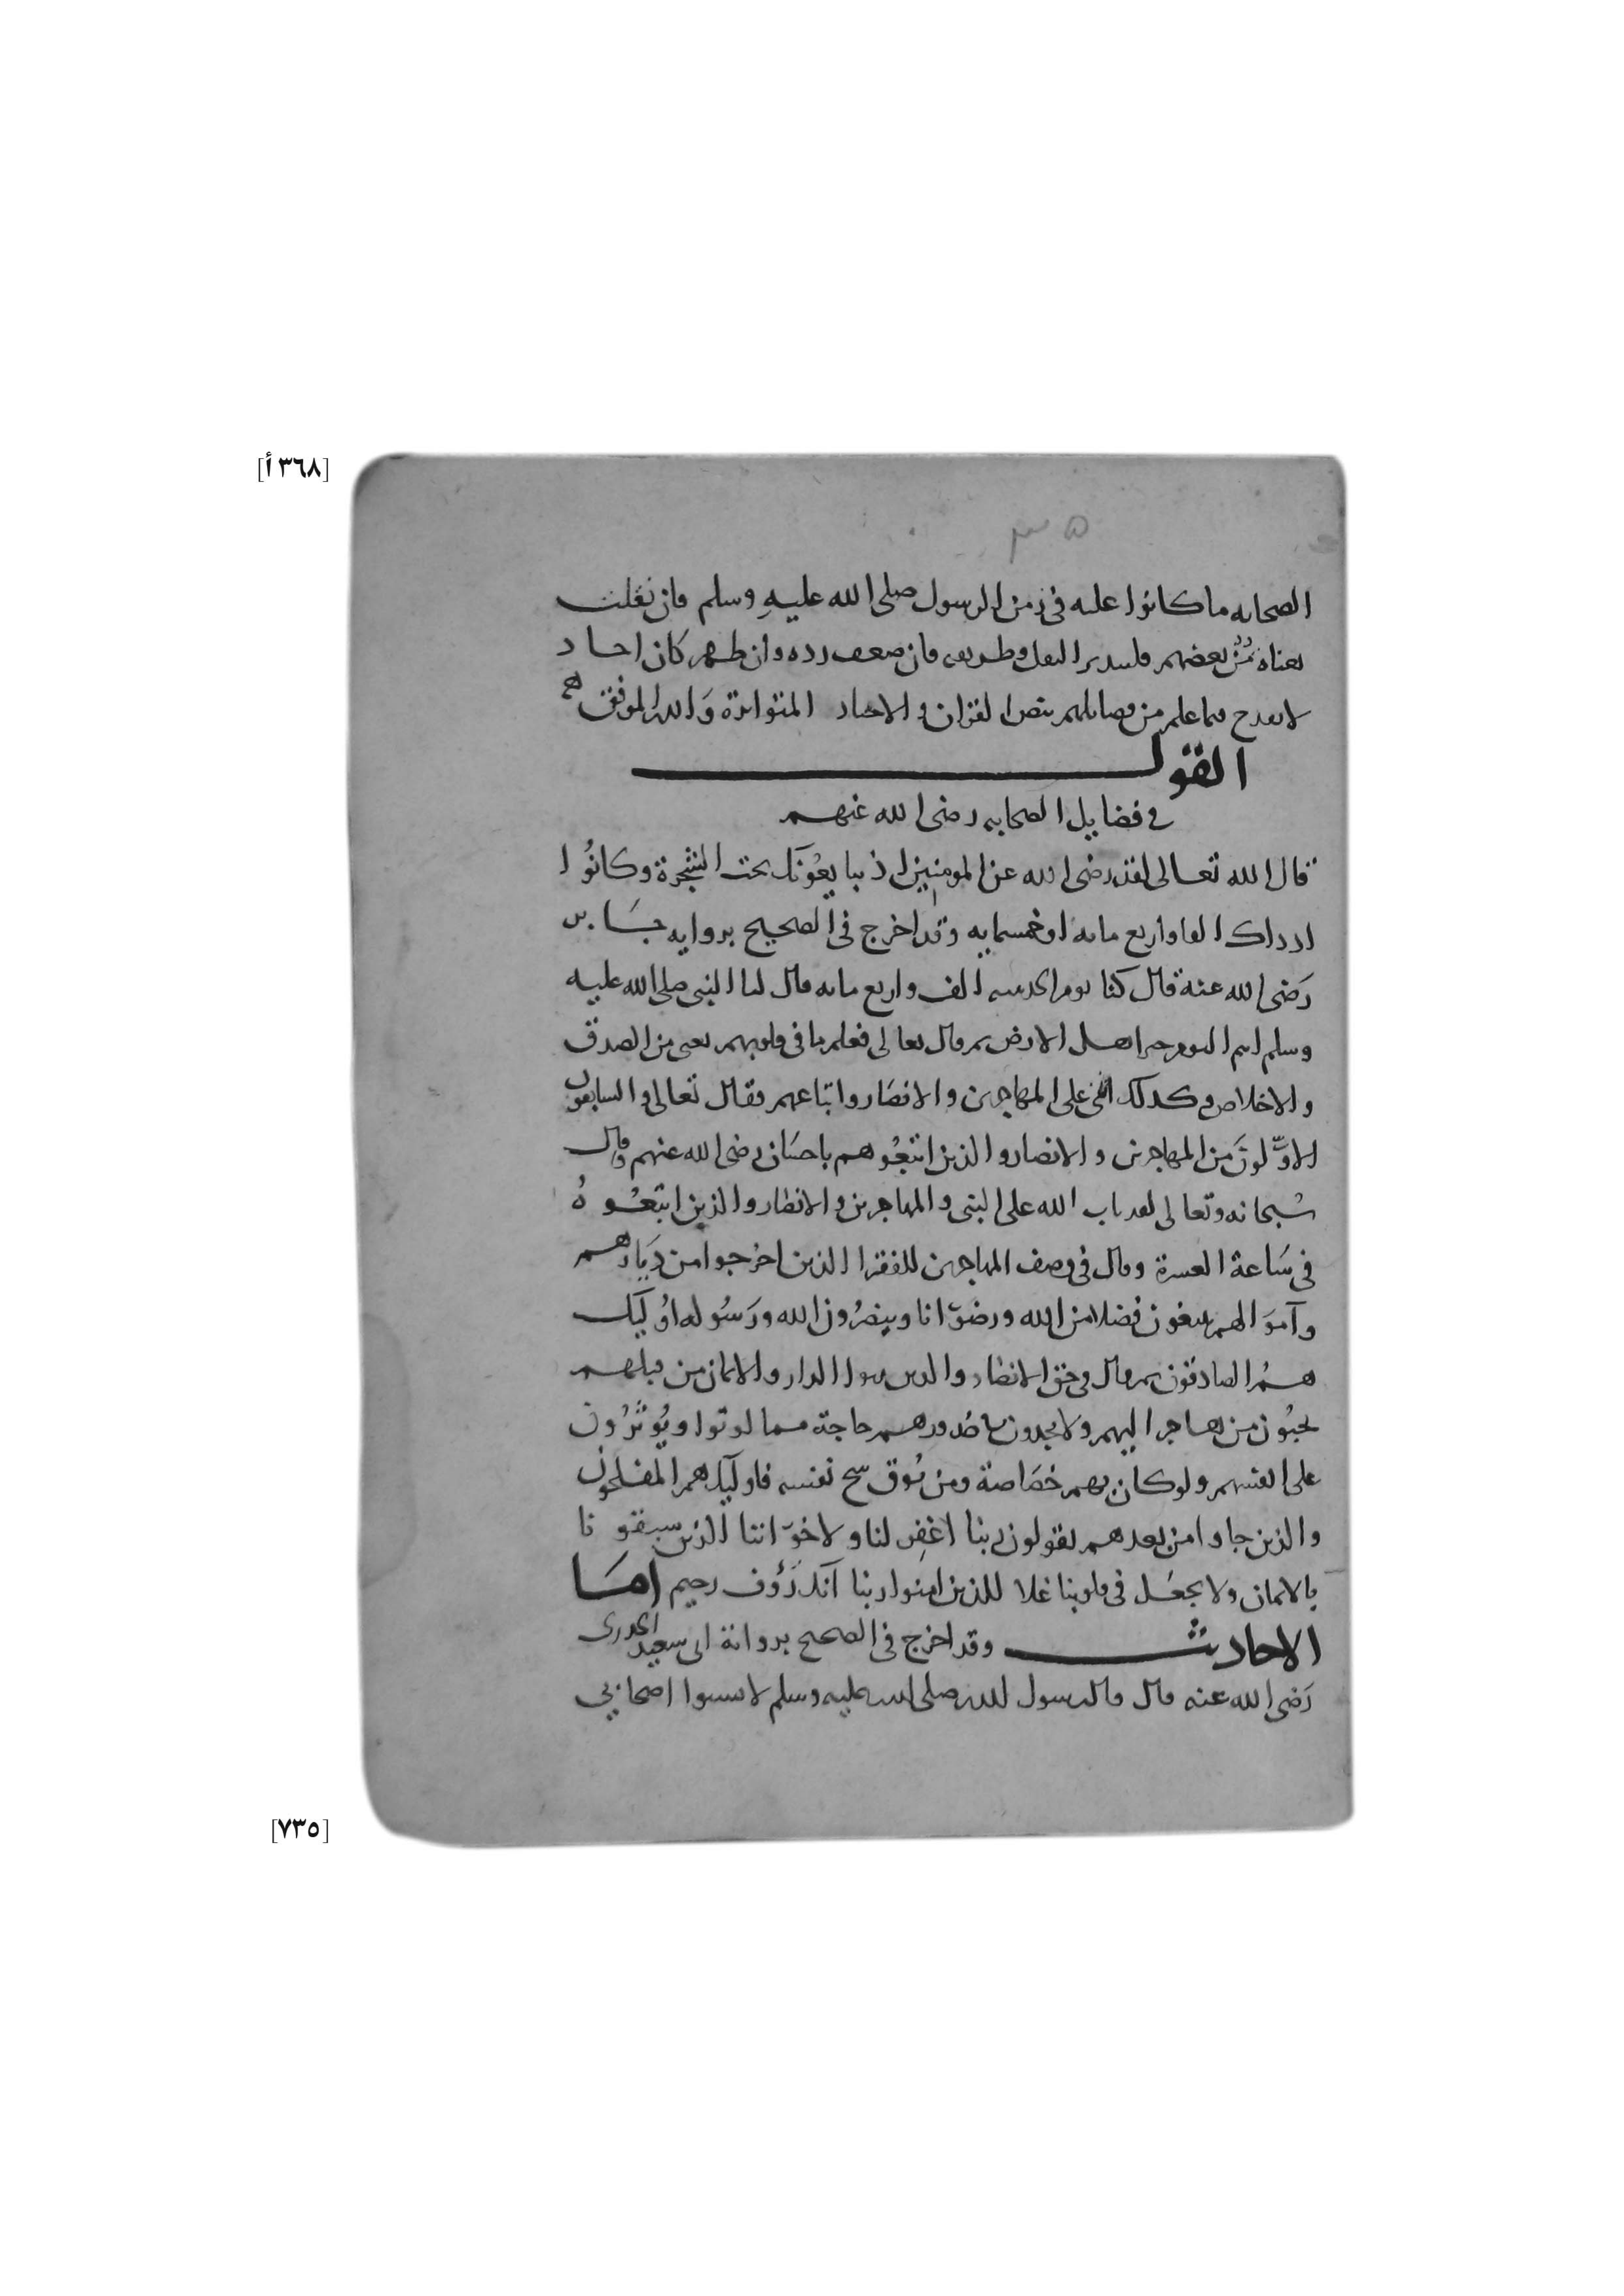 [٣٦٨ أ]
الصحابه ما كانوا عليه في زمن الرسول صلى الله عليه وسلم فان نقلت
هناة من بعضهم فليتدبر النقل وطريقه فان ضعف رده وان ظهر كان احاد
لا يقدح فيما علم من فضائلهم بنص القران والاخبار المتواترة والله الموفق
القول
في فضايل الصحابه رضى الله عنهم
قال الله تعالى لقد رضى الله عن المومنين اذ يبايعونك تحت الشجرة وكانوا
اذ ذاك الفا واربع مايه او خمسمايه وقد اخرج في الصحيح بروايه جابر
رضى الله عنه قال كنا يوم الحديبيه الف واربع مايه قال لنا النبى صلى الله عليه
وسلم انتم اليوم خير اهل الارض ثم قال تعالى فعلم ما في قلوبهم يعنى من الصدق
والاخلاص وكذلك اثنى على المهاجرين والانصار واتباعهم فقال تعالى والسابقون
الاولون من المهاجرين والانصار والذين اتبعوهم باحسان رضى الله عنهم وقال
سبحانه وتعالى لقد تاب الله على النبى والمهاجرين والانصار والذين اتبعوه
في ساعة العسرة وقال في وصف المهاجرين للفقرا الذين اخرجوا من ديارهم
واموالهم يبتغون فضلا من الله ورضوانا وينصرون الله ورسوله اوليك
هم الصادقون ثم قال في حق الانصار والذين تبوؤا الدار والايمان من قبلهم
يحبون من هاجر اليهم ولا يجدون في صدورهم حاجة مما اوتوا ويوثرون
على انفسهم ولو كان بهم خصاصة ومن يوق شح نفسه فاوليك هم المفلحون
والذين جاوا من بعدهم يقولون ربنا اغفر لنا ولاخواننا الذين سبقونا
بالايمان ولا تجعل في قلوبنا غلا للذين امنوا ربنا انك رؤف رحيم اما
الاحاديث وقد اخرج في الصحيح برواية ابى سعيد الخدرى
رضى الله عنه قال قال رسول الله صلى الله عليه وسلم لا تسبوا اصحابي
[٧٣٥]